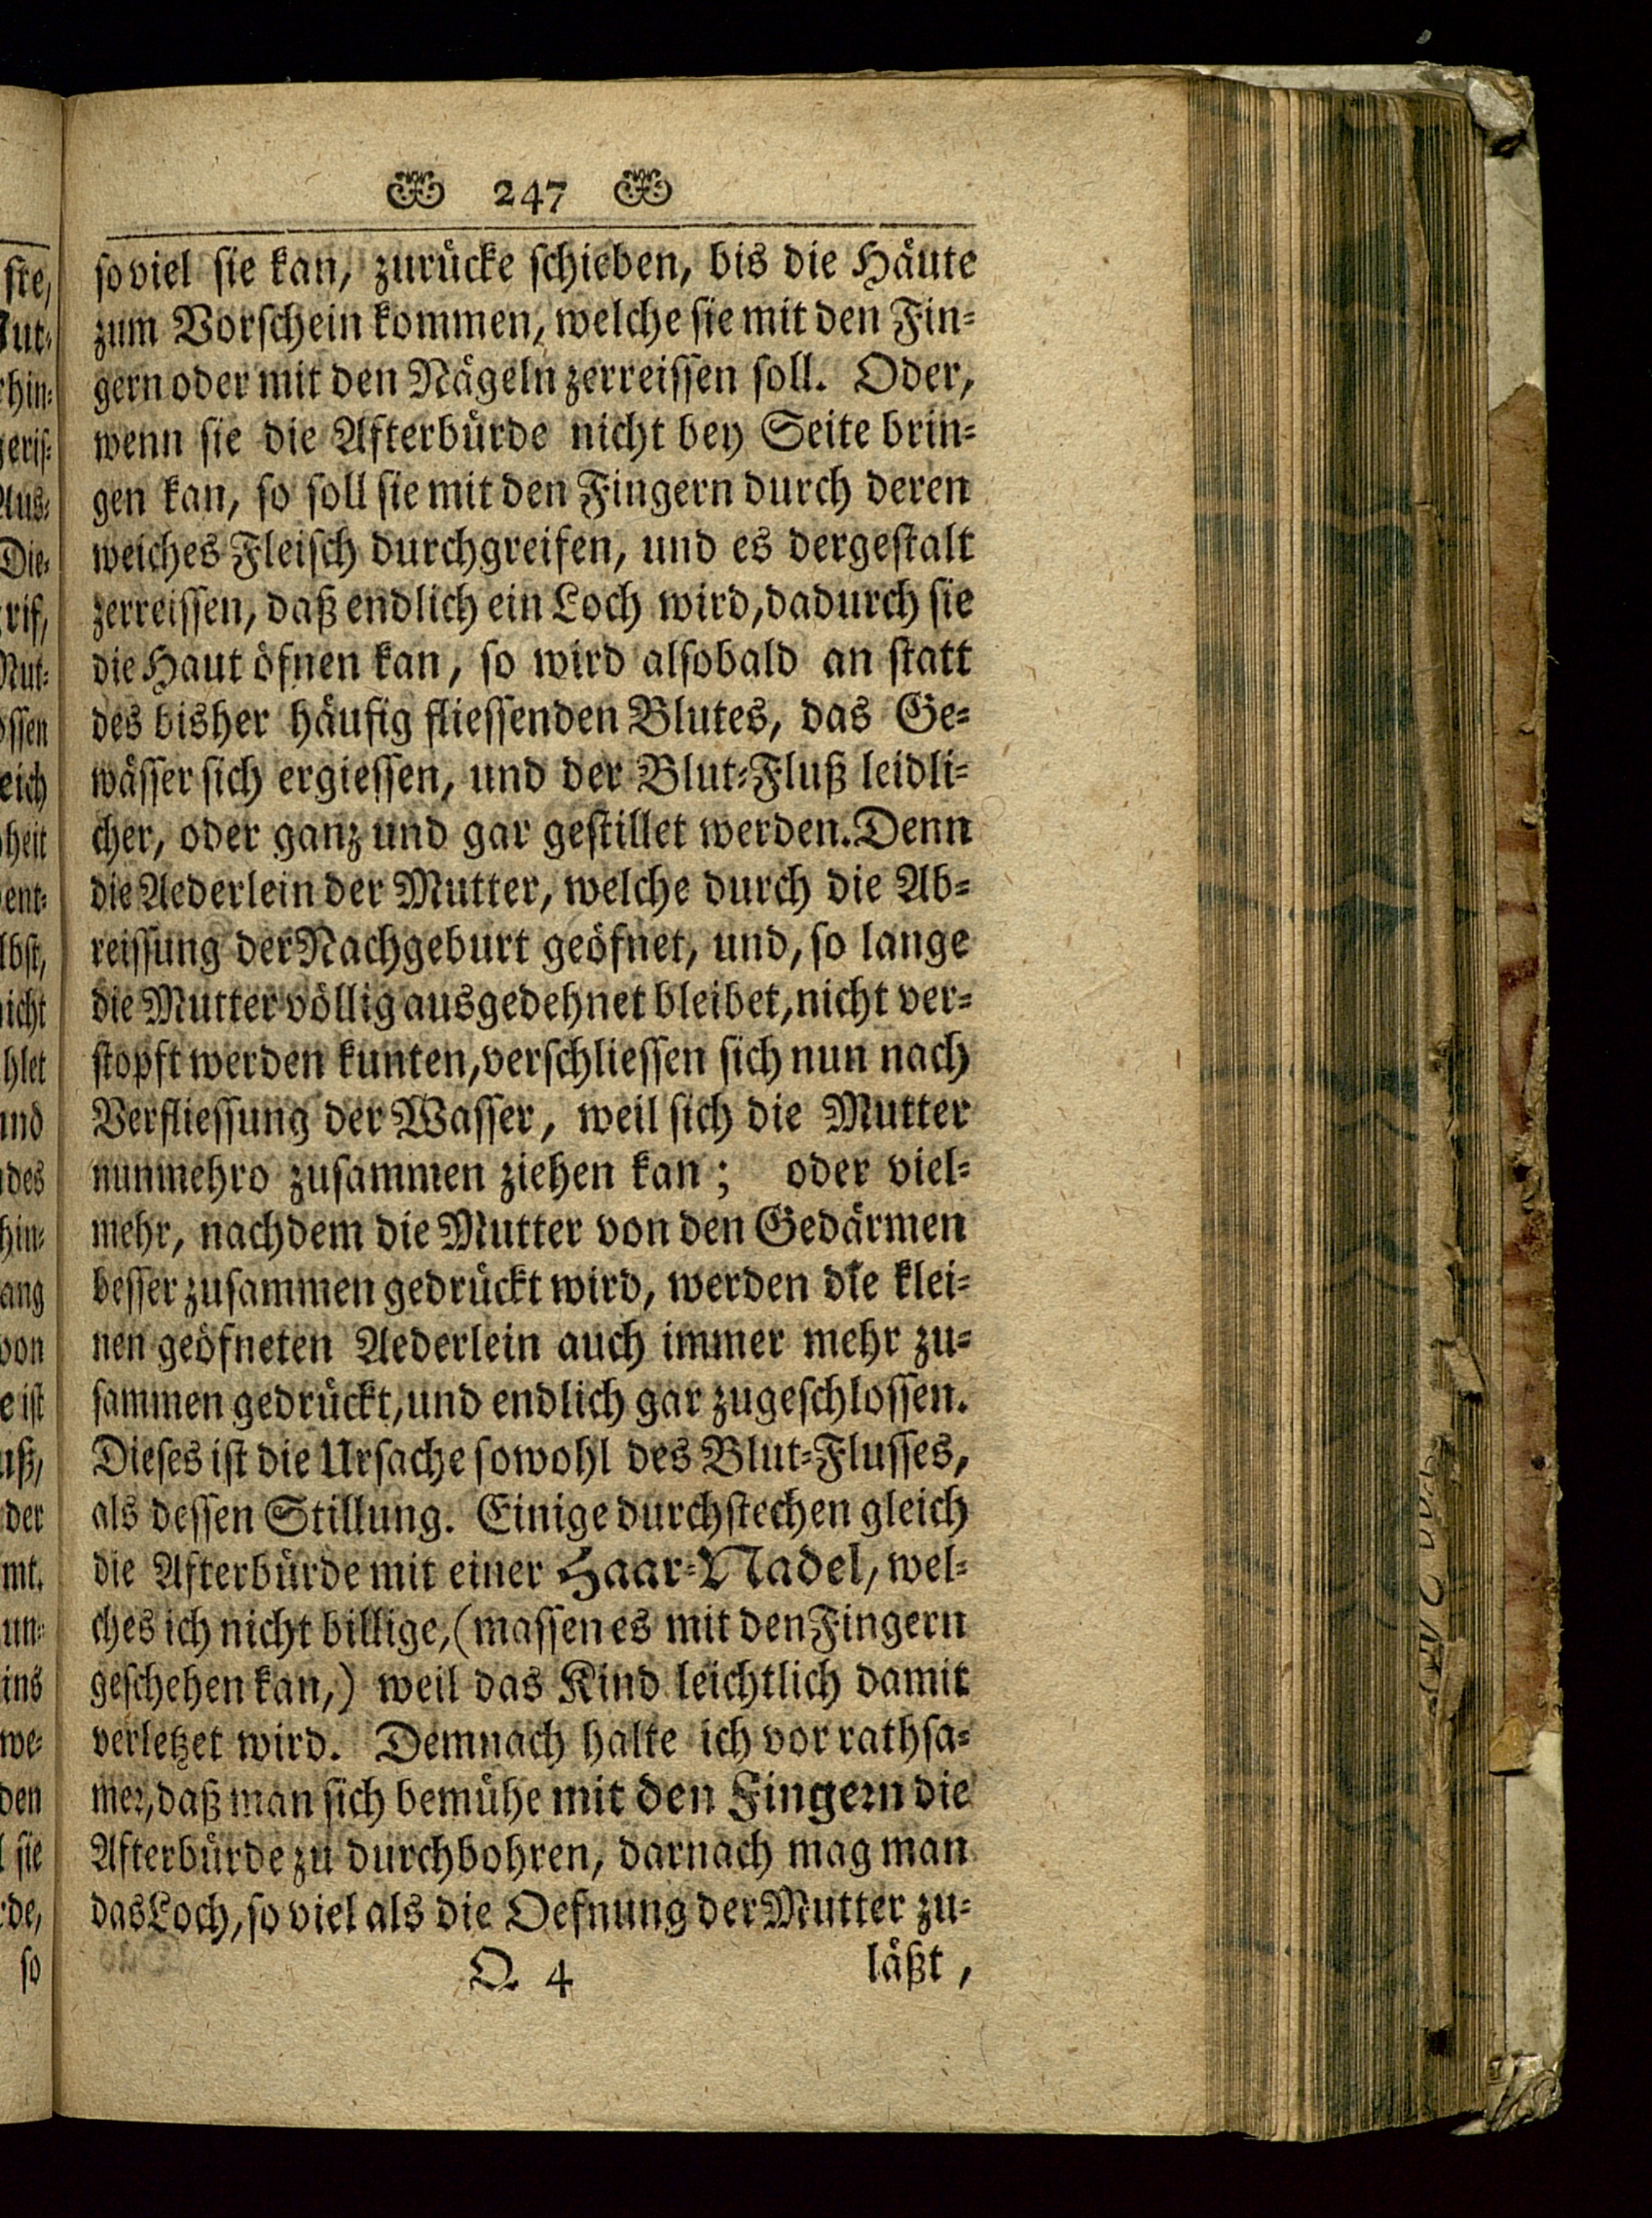 247
so viel sie kan, zurücke schieben, bis die Häute
zum Vorschein kommen, welche sie mit den Fin=
gern oder mit den Nägeln zerreissen soll. Oder,
wenn sie die Afterbürde nicht bey Seite brin=
gen kan, so soll sie mit den Fingern durch deren
weiches Fleisch durchgreifen, und es dergestalt
zerreissen, daß endlich ein Loch wird, dadurch sie
die Haut öfnen kan, so wird alsobald an statt
des bisher häufig fliessenden Blutes, das Ge=
wässer sich ergiessen, und der Blut=Fluß leidli=
cher, oder ganz und gar gestillet werden. Denn
die Aederlein der Mutter, welche durch die Ab=
reissung der Nachgeburt geöfnet, und, so lange
die Mutter völlig ausgedehnet bleibet, nicht ver=
stopft werden kunten, verschliessen sich nun nach
Verfliessung der Wasser, weil sich die Mutter
nunmehro zusammen ziehen kan; oder viel=
mehr, nachdem die Mutter von den Gedärmen
besser zusammen gedrückt wird, werden die klei=
nen geöfneten Aederlein auch immer mehr zu=
sammen gedrückt, und endlich gar zugeschlossen.
Dieses ist die Ursache sowohl des Blut=Flusses,
als dessen Stillung. Einige durchstechen gleich
die Afterbürde mit einer Haar=Nadel, wel=
ches ich nicht billige, (massen es mit den Fingern
geschehen kan,) weil das Kind leichtlich damit
verletzet wird. Demnach halte ich vor rathsa=
mer, daß man sich bemühe mit den Fingern die
Afterbürde zu durchbohren, darnach mag man
das Loch, so viel als die Oefnung der Mutter zu=
Q 4 läßt,